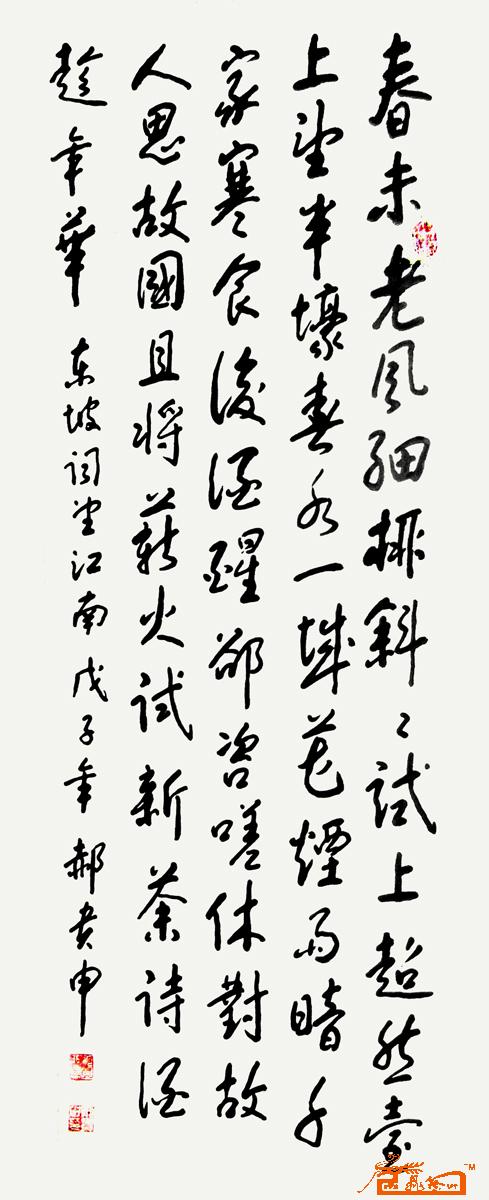 春未老風細柳斜〻試上超然臺
上望半壕春水一城花煙雨暗千
家寒食後酒醒卻咨嗟休對故
人思故國且將薪火試新茶詩酒
趁年華 东坡词望江南戊子年郝贵申